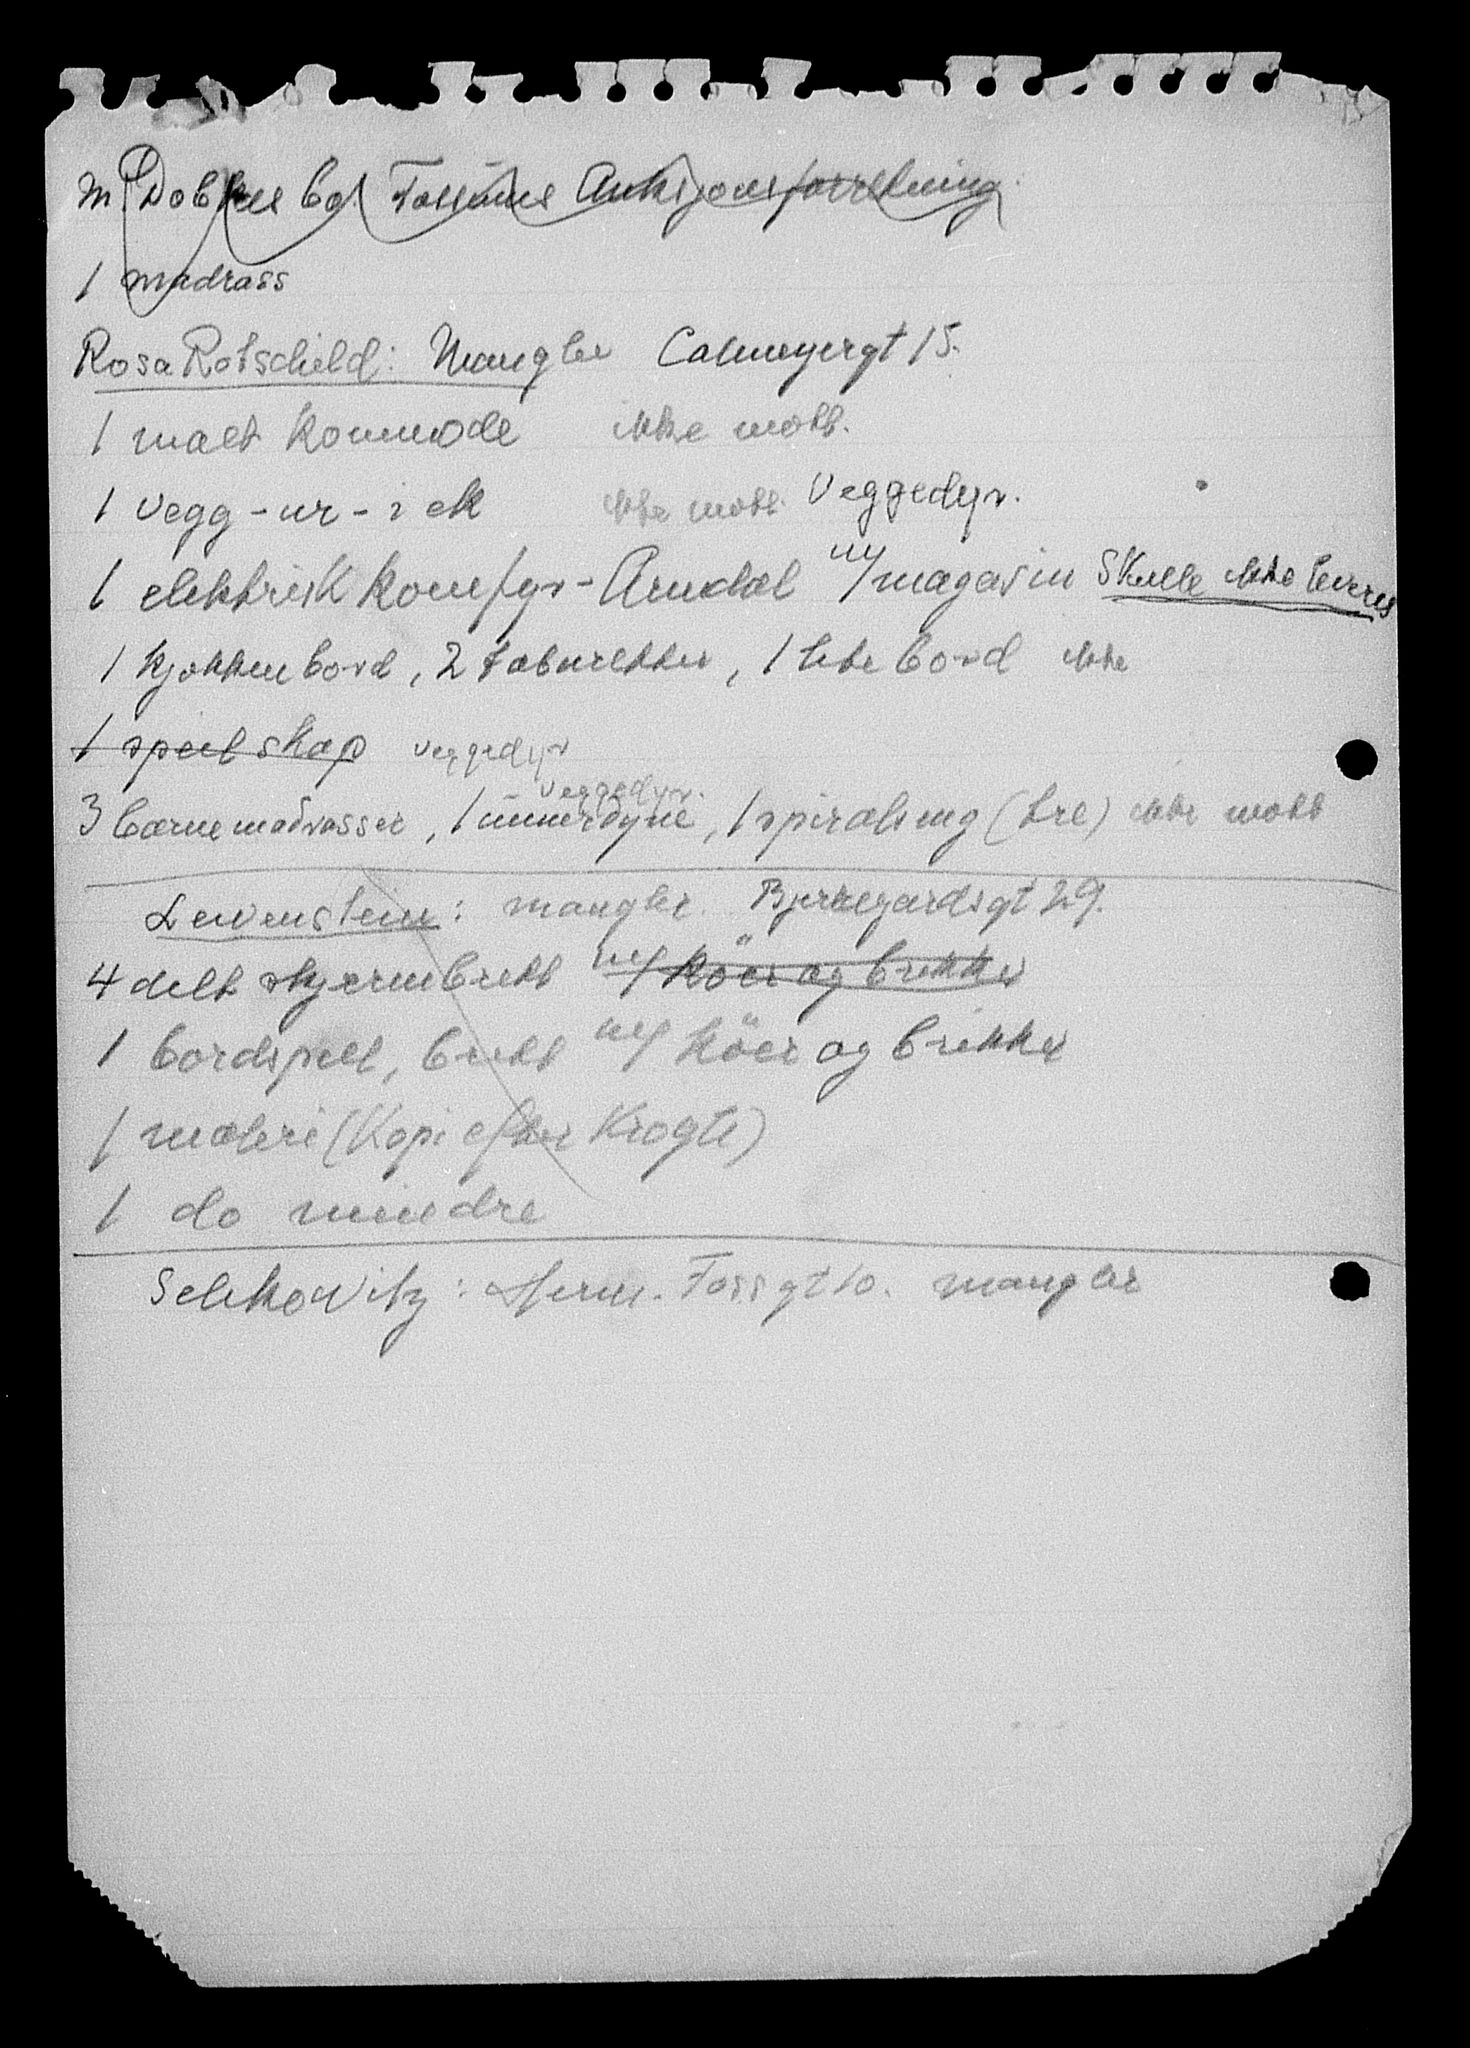 1 madrass
Rosa Rotschild: Mangler Calmeyergt 15.
1 malt kommode ikke mott.
1 vegg-ur-i ek ikke mott. Veggedyr.
1 elektrisk komfyr - Arendal m/magasin Skulle ikke leveres
1 kjøkkenbord, 2 taburetter, 1 lite bord ikke
1 speilskap veggedyr
veggedyr.
3 barnemadrasser, 1 underdyne, 1 spiralseng (tre) ikke mott
Levenstein: mangler. Bjerregårdsgt 29.
4 delt skjermbrett m/ köer og brikker
1 bordspill, brett m/ köer og brikker
1 maleri (Kopi efter Krogh)
1 do mindre
Selikowitz: Herm. Fossgt 10. mangler